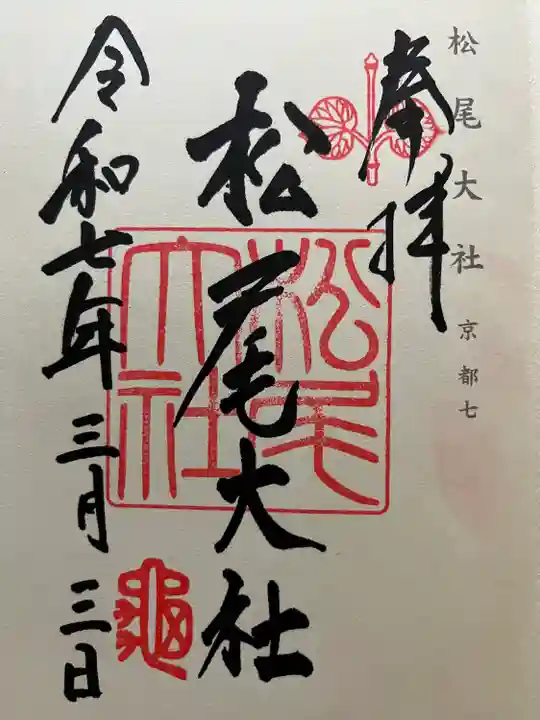 松尾大社 京都七
奉拝
松尾大社
松尾大社
令和七年三月三日
亀